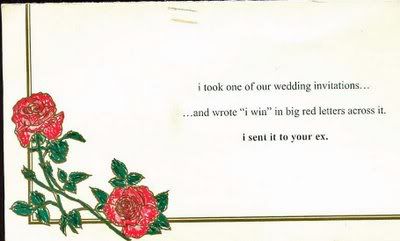 i took one of our wedding invitations…
…and wrote “i win” in big red letters across it.
i sent it to your ex.